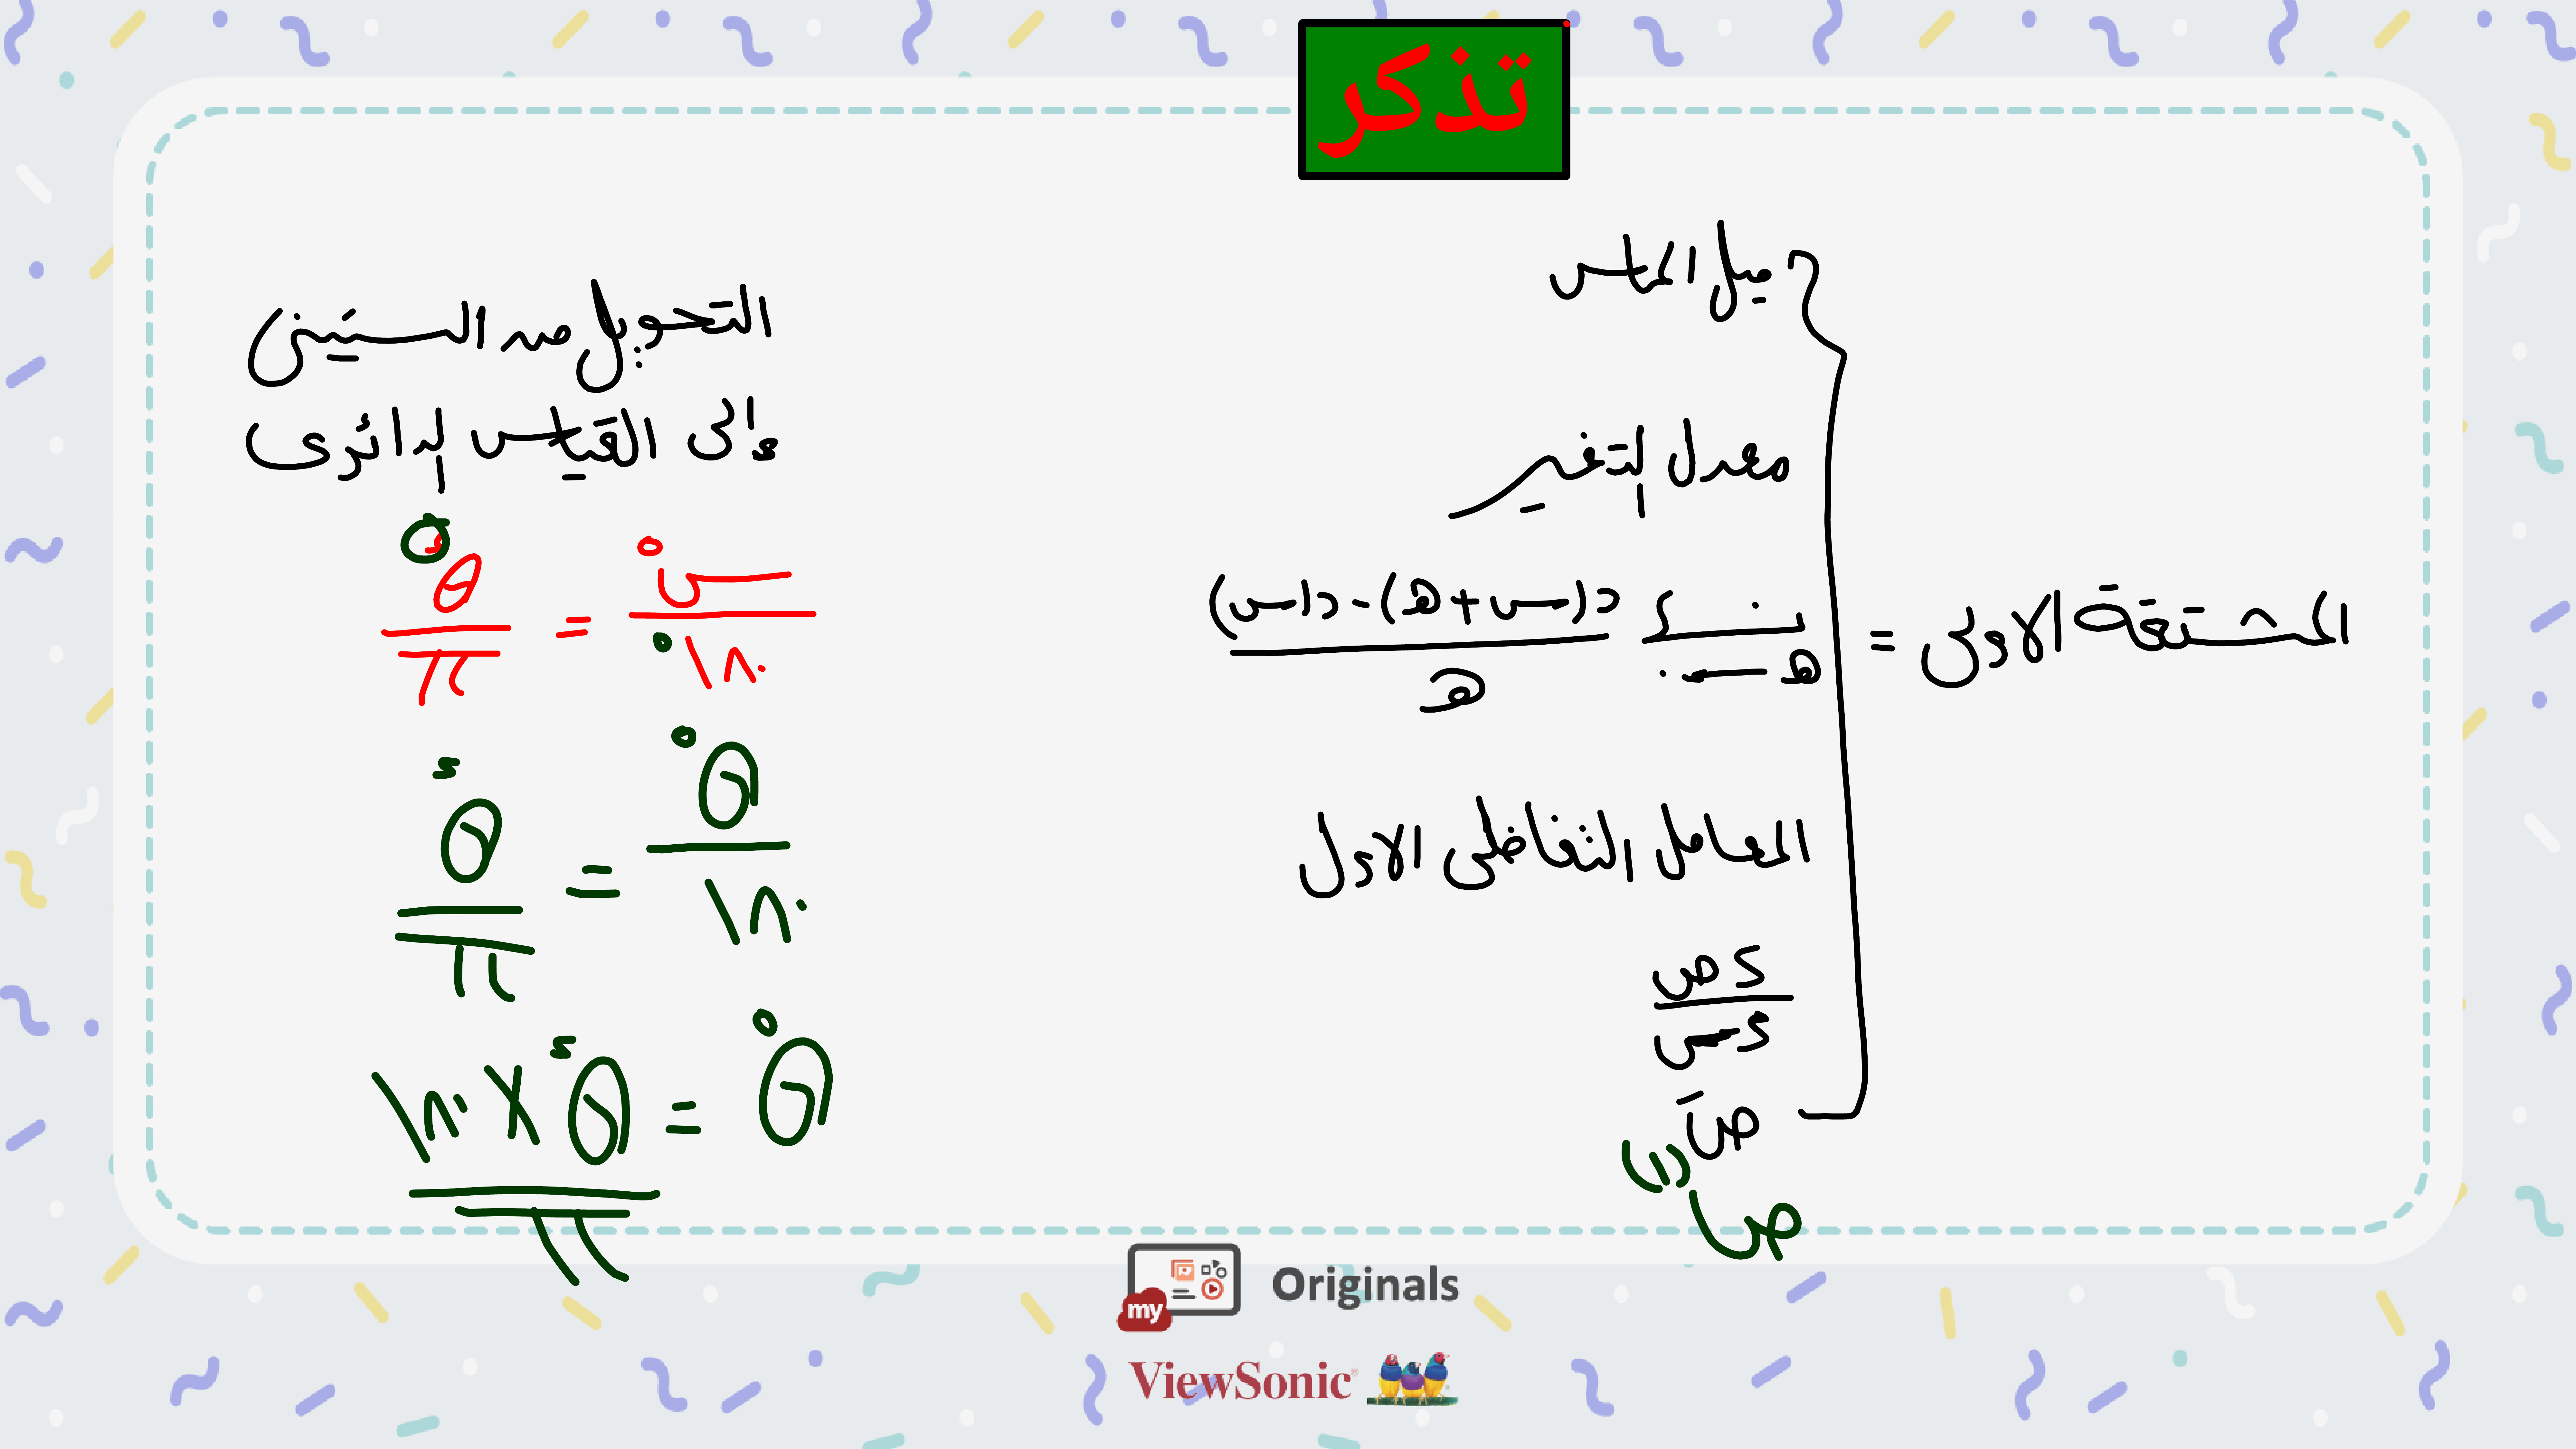 تذكر
المشتقة الاولى =
ميل المماس
معدل التغير
نهــا هـ ← ٠ (د(س + هـ) - د(س)) / هـ
المعامل التفاضلى الاول
ءص / ءس
صَ
ص(١)
التحويل من الستينى
إلى القياس الدائرى
س° / ١٨٠° = θء / π
θ° / ١٨٠ = θء / π
θ° = θء × ١٨٠ / π
my
Originals
ViewSonic